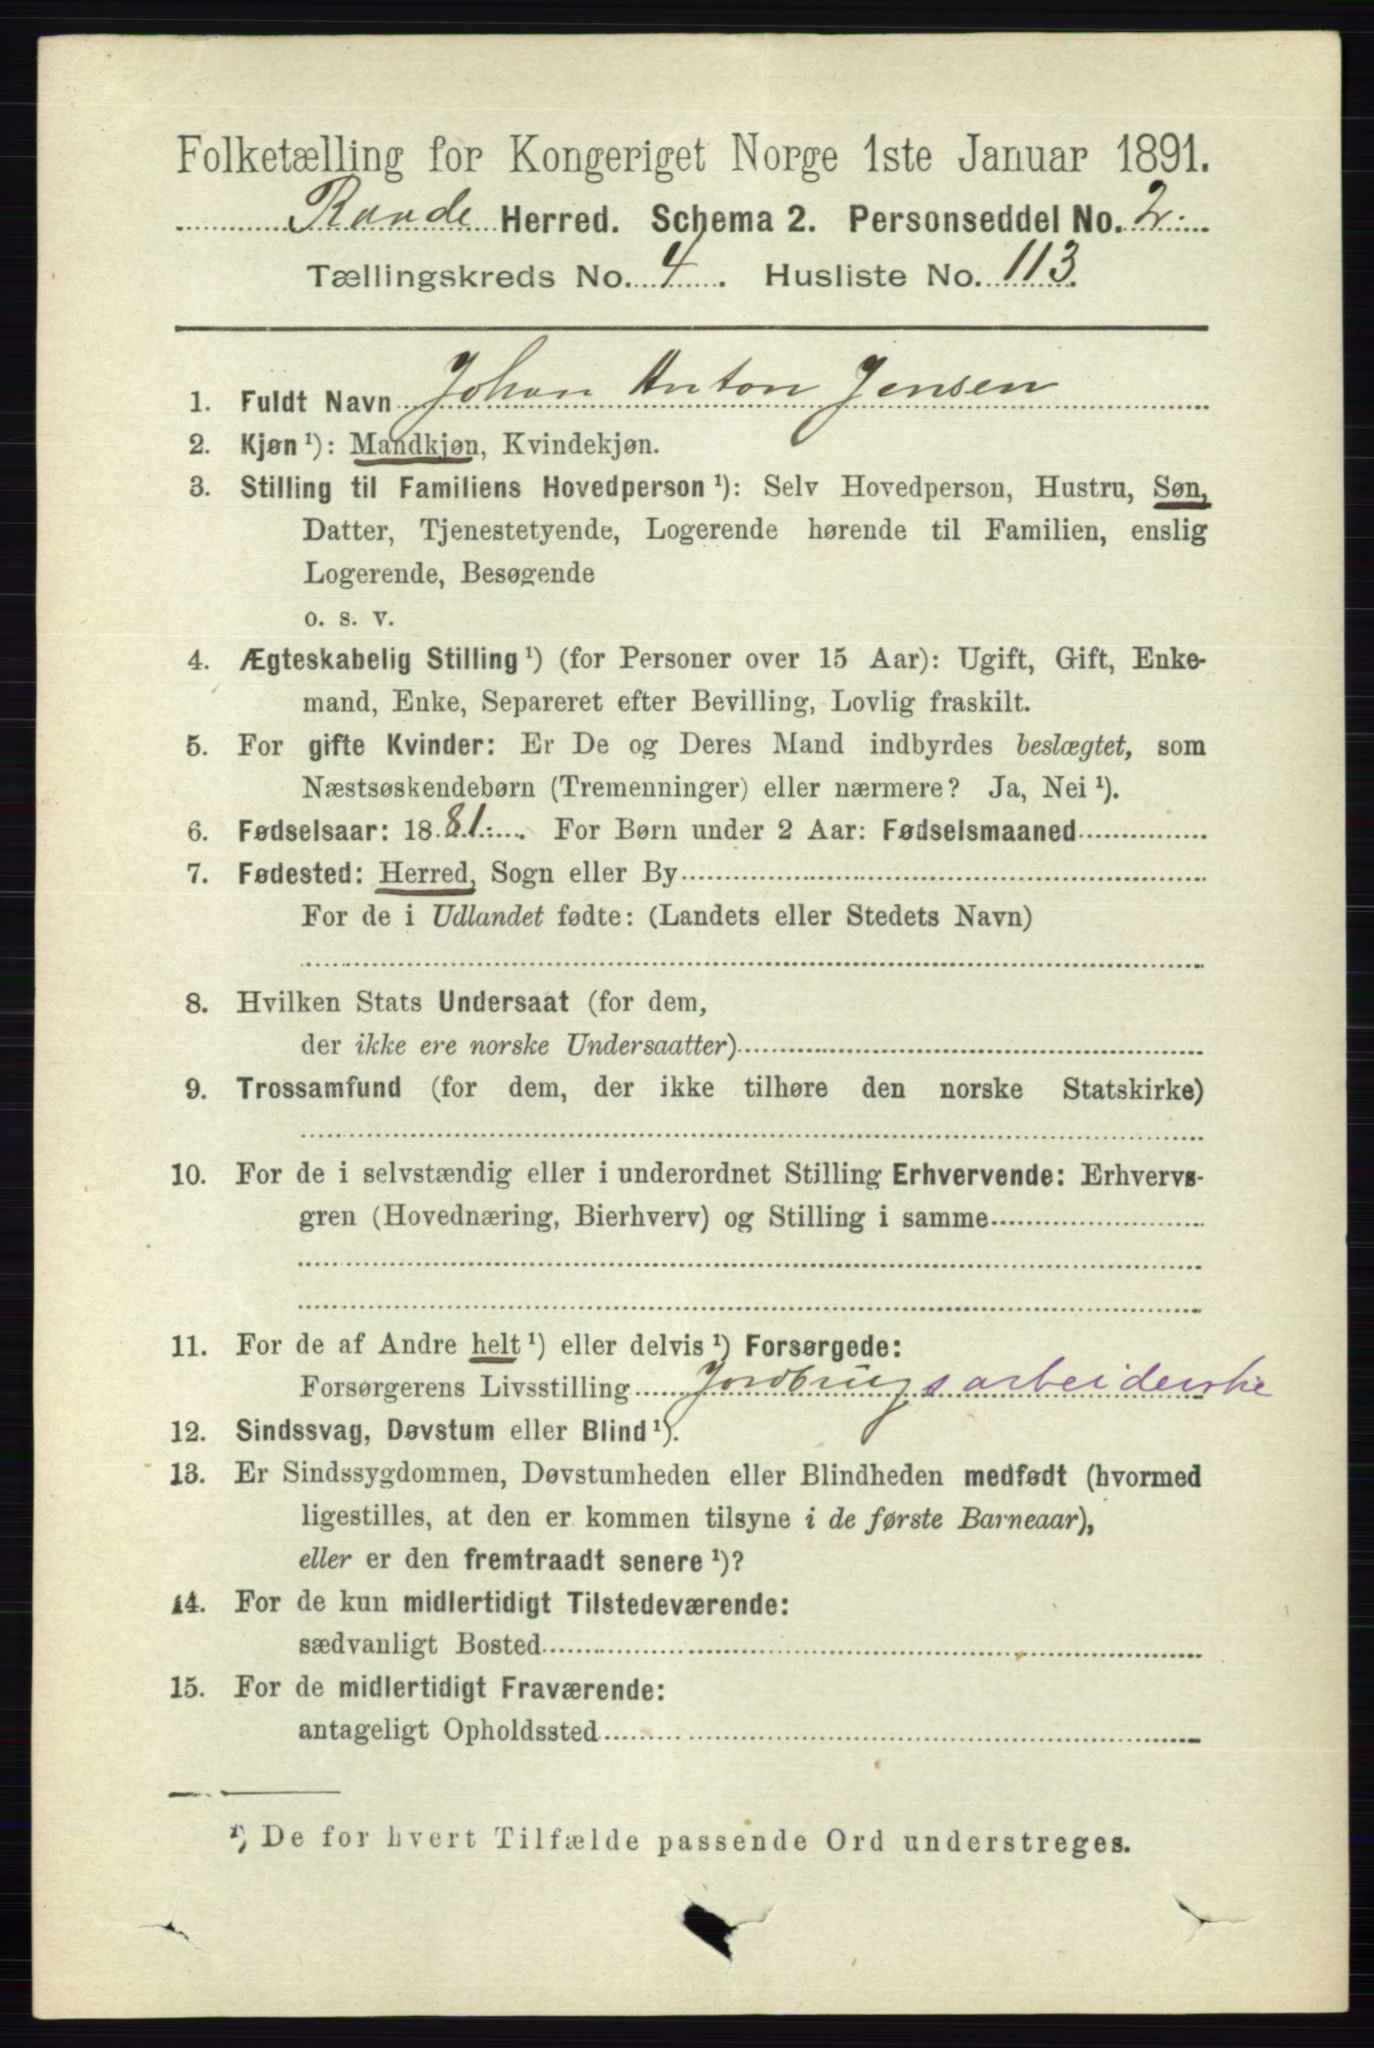 Folketælling for Kongeriget Norge 1ste Januar 1891.
Raade Herred. Schema 2. Personseddel No. 2.
Tællingskreds No. 4. Husliste No. 113.
1. Fuldt Navn Johan Anton Jensen
2. Kjøn ¹): Mandkjøn, Kvindekjøn.
3. Stilling til Familiens Hovedperson ¹): Selv Hovedperson, Hustru, Søn,
Datter, Tjenestetyende, Logerende hørende til Familien, enslig
Logerende, Besøgende
o. s. v.
4. Ægteskabelig Stilling ¹) (for Personer over 15 Aar): Ugift, Gift, Enke-
mand, Enke, Separeret efter Bevilling, Lovlig fraskilt.
5. For gifte Kvinder: Er De og Deres Mand indbyrdes beslægtet, som
Næstsøskendebørn (Tremenninger) eller nærmere? Ja, Nei ¹).
6. Fødselsaar: 1881. For Børn under 2 Aar: Fødselsmaaned
7. Fødested: Herred, Sogn eller By
For de i Udlandet fødte: (Landets eller Stedets Navn)
8. Hvilken Stats Undersaat (for dem,
der ikke ere norske Undersaatter)
9. Trossamfund (for dem, der ikke tilhøre den norske Statskirke)
10. For de i selvstændig eller i underordnet Stilling Erhvervende: Erhvervs-
gren (Hovednæring, Bierhverv) og Stilling i samme
11. For de af Andre helt ¹) eller delvis ¹) Forsørgede:
Forsørgerens Livsstilling Jordbrugsarbeiderske
12. Sindssvag, Døvstum eller Blind ¹).
13. Er Sindssygdommen, Døvstumheden eller Blindheden medfødt (hvormed
ligestilles, at den er kommen tilsyne i de første Barneaar),
eller er den fremtraadt senere ¹)?
14. For de kun midlertidigt Tilstedeværende:
sædvanligt Bosted
15. For de midlertidigt Fraværende:
antageligt Opholdssted
¹) De for hvert Tilfælde passende Ord understreges.